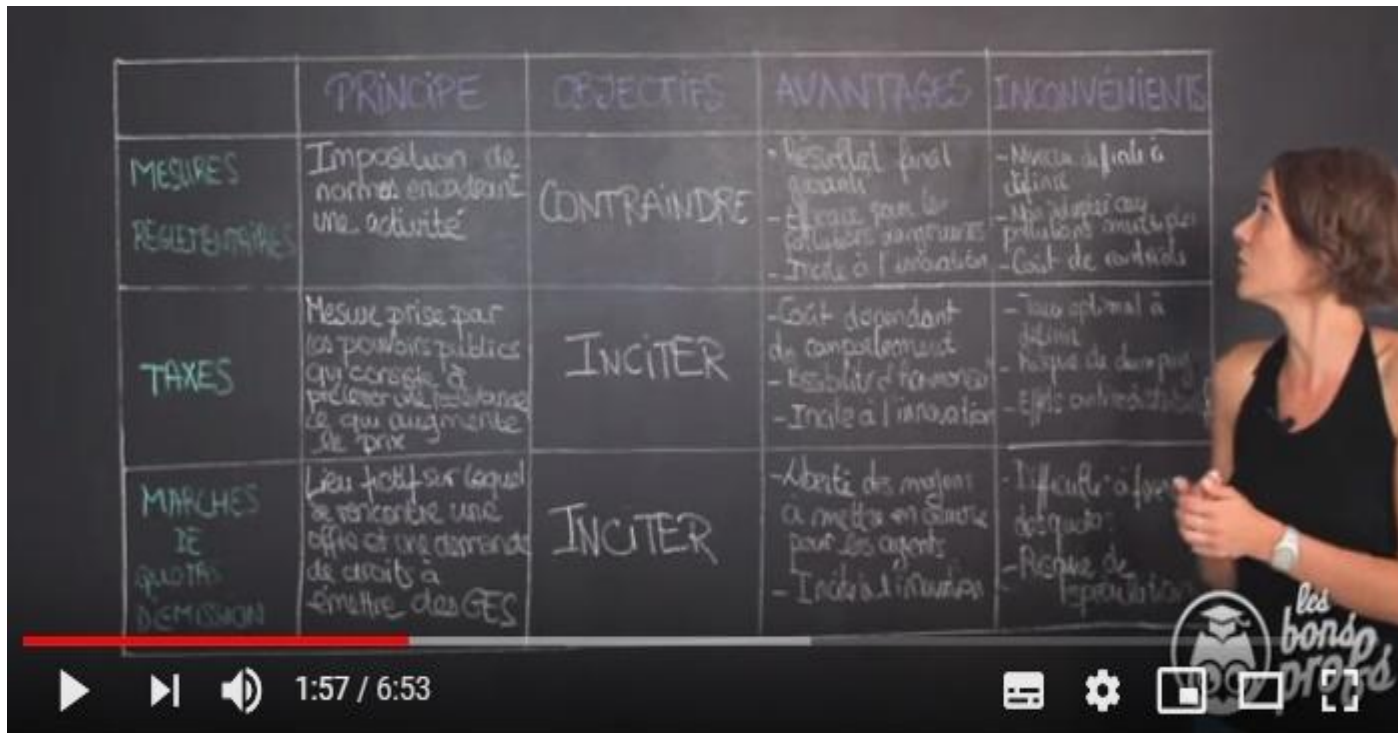 PRINCIPE
OBJECTIFS
AVANTAGES
INCONVÉNIENTS
MESURES
RÉGLEMENTAIRES
Imposition de
normes encadrant
une activité
CONTRAINDRE
- Résultat final
garanti
- Efficace pour les
pollutions dangereuses
- Incite à l'innovation
- Niveau difficile à
définir
- Non adapté aux
pollutions multiples
- Coût de contrôle
TAXES
Mesure prise par
les pouvoirs publics
qui consiste à
prélever une redevance
ce qui augmente
le prix
INCITER
- Coût dépendant
du comportement
- Possibilité d'
- Incite à l'innovation
- Taux optimal à
définir
- Risque de dumping
- Effets
MARCHÉS
DE
QUOTAS
D'ÉMISSION
Lieu fictif sur lequel
se rencontre une
offre et une demande
de droits à
émettre des GES
INCITER
- Liberté des moyens
à mettre en œuvre
pour les agents
- Incite à l'innovation
- Difficulté à
des quotas
- Risque de
spéculation
les
bons
profs
1:57 / 6:53